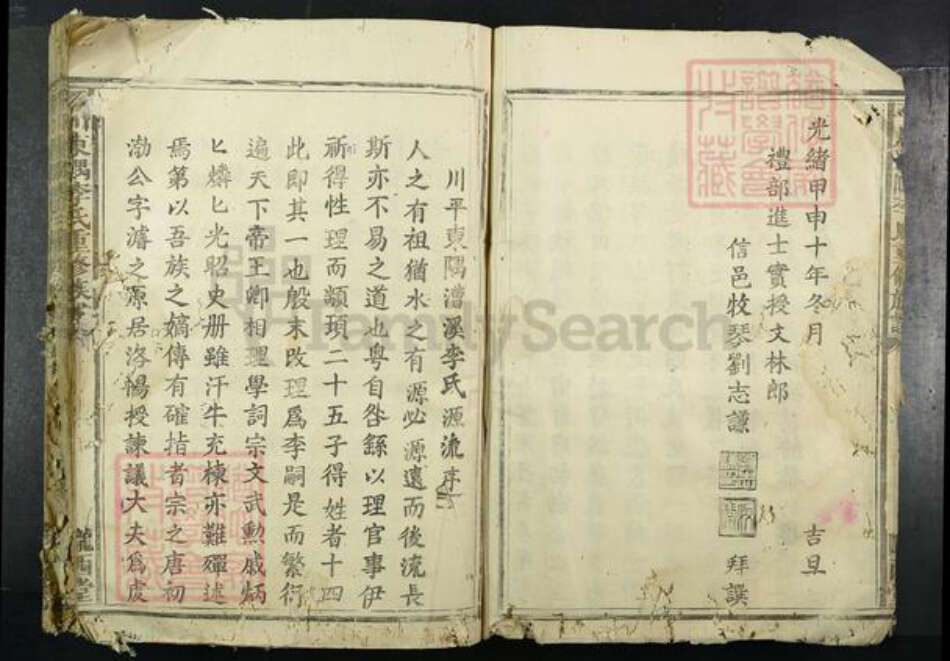 光緒甲申十年冬月　吉旦
禮部進士實授文林郎
信邑牧琴劉志謙　拜譔
川平東隅漕溪李氏源流序
人之有祖猶水之有源必源遠而後流長
斯亦不易之道也粵自咎繇以理官事伊
祈得性理而顓頊二十五子得姓者十四
此即其一也殷末改理為李嗣是而繁衍
遍天下帝王卿相理學詞宗文武勳戚炳
匕燐匕光昭史册雖汗牛充棟亦難殫述
焉第以吾族之嫡傳有確指者宗之唐初
渤公字濬之原居洛暢授諫議大夫為虔
東隅李氏重修族
隴西堂
FamilySearch